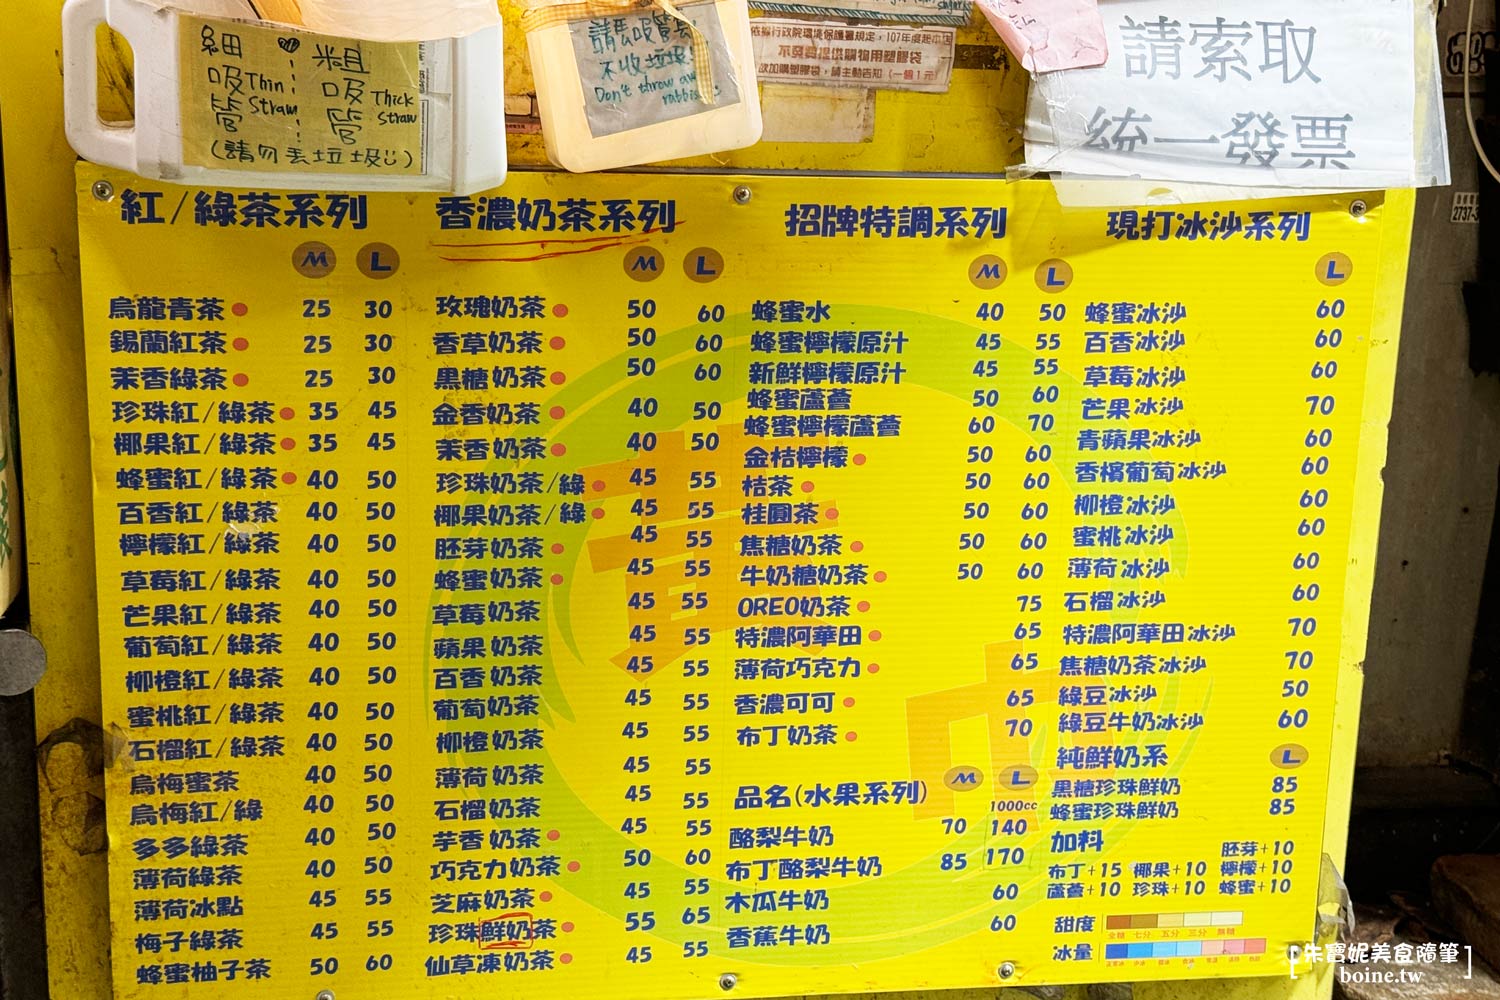 細 ♡ 粗
吸 Thin 吸 Thick
管 Straw 管 Straw
(請勿丟垃圾☺)
不收垃圾!
Don't throw away
rabbish
依據行政院環境保護署規定,107年度起本店
不免費提供購物用塑膠袋
欲加購塑膠袋,請主動告知(一個1元)
請索取
統一發票
紅/綠茶系列
M L
烏龍青茶 25 30
錫蘭紅茶 25 30
茉香綠茶 25 30
珍珠紅/綠茶 35 45
椰果紅/綠茶 35 45
蜂蜜紅/綠茶 40 50
百香紅/綠茶 40 50
檸檬紅/綠茶 40 50
草莓紅/綠茶 40 50
芒果紅/綠茶 40 50
葡萄紅/綠茶 40 50
柳橙紅/綠茶 40 50
蜜桃紅/綠茶 40 50
石榴紅/綠茶 40 50
烏梅蜜茶 40 50
烏梅紅/綠 40 50
多多綠茶 40 50
薄荷綠茶 40 50
薄荷冰點 45 55
梅子綠茶 45 55
蜂蜜柚子茶 50 60
香濃奶茶系列
M L
玫瑰奶茶 50 60
香草奶茶 50 60
黑糖奶茶 50 60
金香奶茶 40 50
茉香奶茶 40 50
珍珠奶茶/綠 45 55
椰果奶茶/綠 45 55
胚芽奶茶 45 55
蜂蜜奶茶 45 55
草莓奶茶 45 55
蘋果奶茶 45 55
百香奶茶 45 55
葡萄奶茶 45 55
柳橙奶茶 45 55
薄荷奶茶 45 55
石榴奶茶 45 55
芋香奶茶 45 55
巧克力奶茶 50 60
芝麻奶茶 45 55
珍珠鮮奶茶 55 65
仙草凍奶茶 45 55
招牌特調系列
M L
蜂蜜水 40 50
蜂蜜檸檬原汁 45 55
新鮮檸檬原汁 45 55
蜂蜜蘆薈 50 60
蜂蜜檸檬蘆薈 60 70
金桔檸檬 50 60
桔茶 50 60
桂圓茶 50 60
焦糖奶茶 50 60
牛奶糖奶茶 50 60
OREO奶茶 75
特濃阿華田 65
薄荷巧克力 65
香濃可可 65
布丁奶茶 70
品名(水果系列) M L
1000cc
酪梨牛奶 70 140
布丁酪梨牛奶 85 170
木瓜牛奶 60
香蕉牛奶 60
現打冰沙系列
L
蜂蜜冰沙 60
百香冰沙 60
草莓冰沙 60
芒果冰沙 70
青蘋果冰沙 60
香檳葡萄冰沙 60
柳橙冰沙 60
蜜桃冰沙 60
薄荷冰沙 60
石榴冰沙 60
特濃阿華田冰沙 70
焦糖奶茶冰沙 70
綠豆冰沙 50
綠豆牛奶冰沙 60
純鮮奶系 L
黑糖珍珠鮮奶 85
蜂蜜珍珠鮮奶 85
加料 胚芽+10
布丁+15 椰果+10 檸檬+10
蘆薈+10 珍珠+10 蜂蜜+10
甜度
全糖 七分 五分 三分 無糖
冰量
朱寶妮美食隨筆
boine.tw